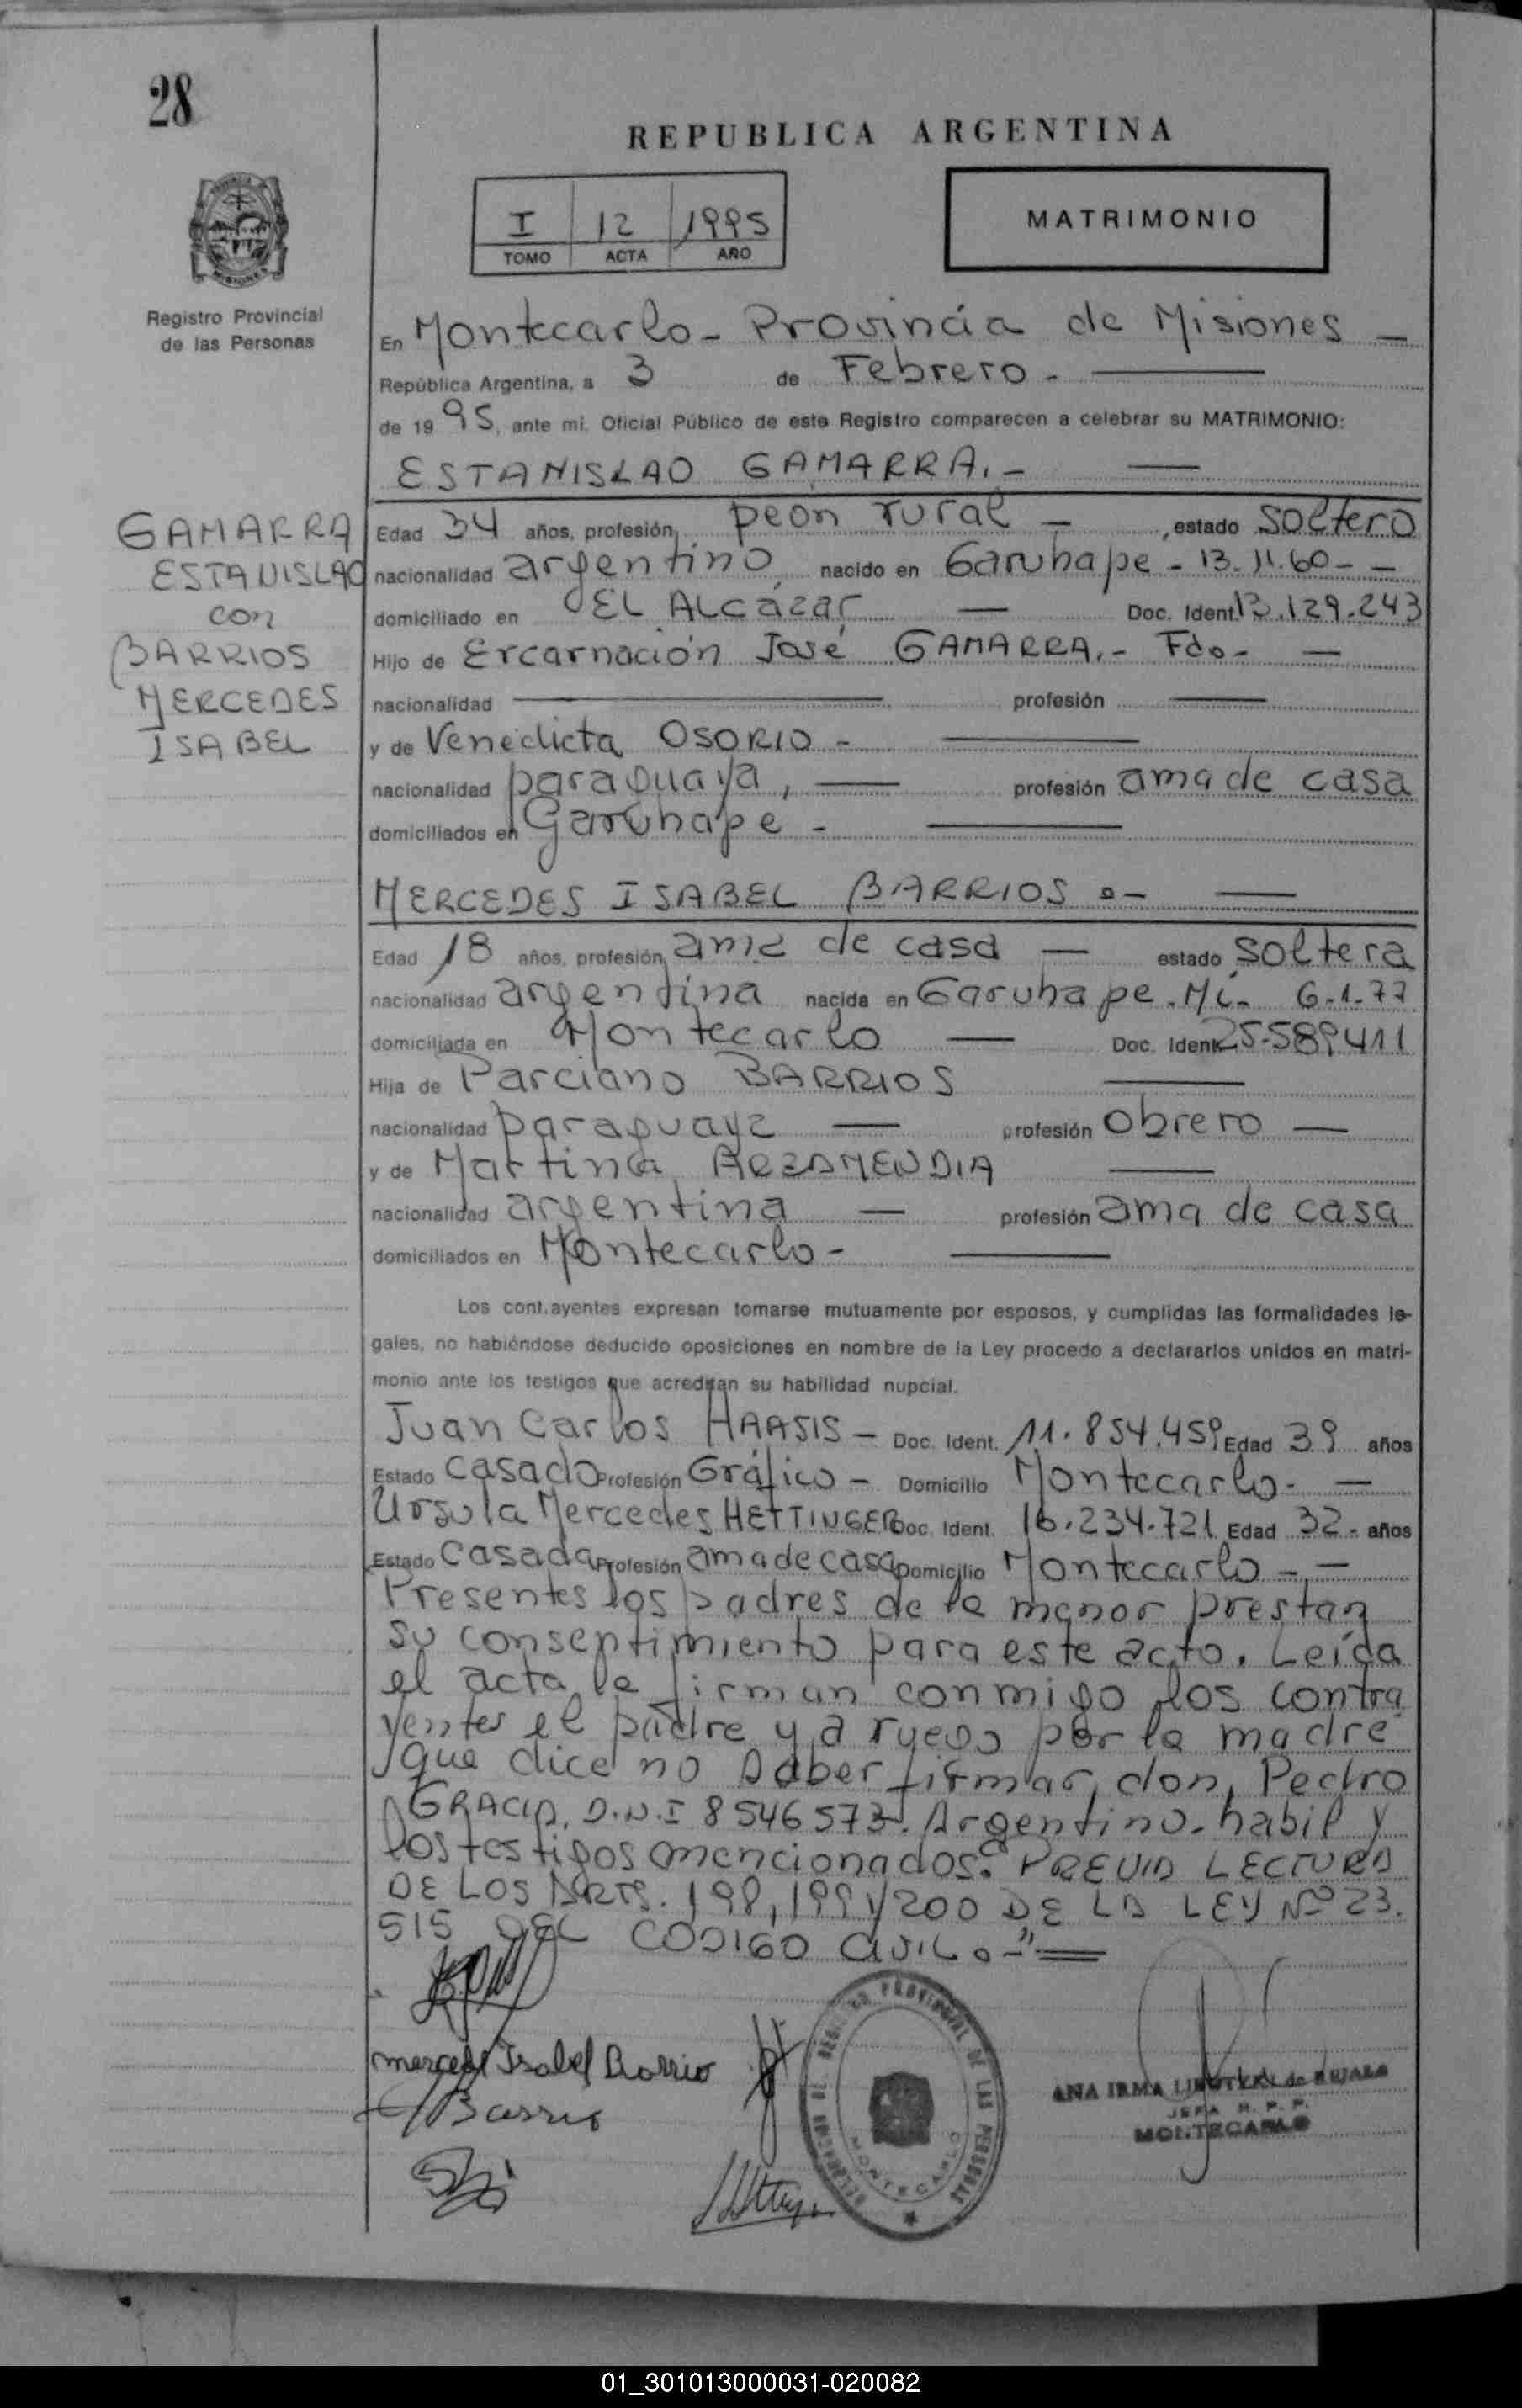 28
REPUBLICA ARGENTINA
I 12 1995
TOMO ACTA AÑO
MATRIMONIO
MISIONES
Registro Provincial
de las Personas
GAMARRA
ESTANISLAO
con
BARRIOS
MERCEDES
ISABEL
En Montecarlo - Provincia de Misiones —
República Argentina, a 3 de Febrero - —
de 1995, ante mi, Oficial Público de este Registro comparecen a celebrar su MATRIMONIO:
ESTANISLAO GAMARRA.- —
Edad 34 años, profesión peón rural — , estado soltero
nacionalidad argentino nacido en Garuhape - 13.11.60 - -
domiciliado en EL ALcázar — Doc. Ident. 13.129.243
Hijo de Ercarnación José GAMARRA.- Fdo- —
nacionalidad — profesión —
y de Venedicta OSORIO - —
nacionalidad paraguaya, — profesión ama de casa
domiciliados en Garuhape - —
MERCEDES ISABEL BARRIOS.- —
Edad 18 años, profesión ama de casa — estado soltera
nacionalidad argentina nacida en Garuhape. Mi- 6-1-77
domiciliada en Montecarlo — Doc. Ident. 25.589411
Hija de Parciano BARRIOS —
nacionalidad paraguaya — profesión Obrero —
y de Martina ARZAMENDIA —
nacionalidad argentina — profesión ama de casa
domiciliados en Montecarlo - —
Los contrayentes expresan tomarse mutuamente por esposos, y cumplidas las formalidades le-
gales, no habiéndose deducido oposiciones en nombre de la Ley procedo a declararlos unidos en matri-
monio ante los testigos que acreditan su habilidad nupcial.
Juan Carlos HAASIS - Doc. Ident. 11.854.459 Edad 39 años
Estado Casado Profesión Gráfico - Domicilio Montecarlo - —
Ursula Mercedes HETTINGER Doc. Ident. 16.234.721 Edad 32- años
Estado Casada Profesión ama de casa Domicilio Montecarlo - —
Presentes los padres de la menor prestan
su consentimiento para este acto. Leída
el acta la firman conmigo los contra
yentes el padre y a ruego por la madre
que dice no saber firmar, don, Pedro
GRACIA, D.N.I 8546573. Argentino. habil y
los testigos mencionados. PREVIA LECTURA
DE LOS ARTS. 198, 199 y 200 DE LA LEY Nº 23.
515 DEL CODIGO CIVIL.-" =
Mercedes Isabel Barrio
Barrio
DELEGACION DEL REGISTRO PROVINCIAL DE LAS PERSONAS
MONTECARLO
ANA IRMA de
JEFA R. P. P.
MONTECARLO
01_301013000031-020082